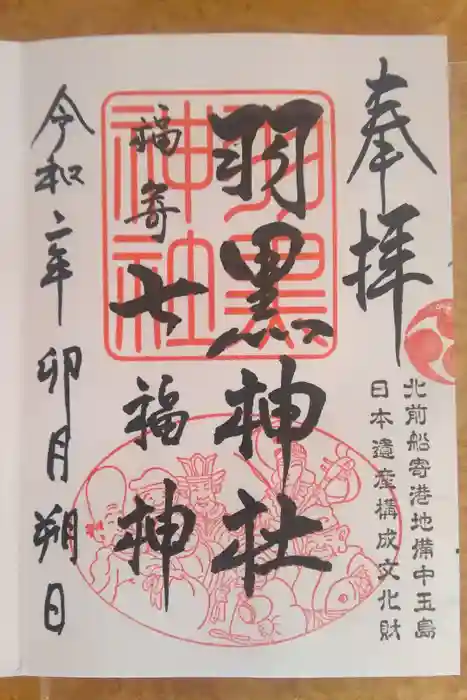 奉拝
北前船寄港地備中玉島
日本遺産構成文化財
羽黒神社
羽黒
神社
福寄七福神
令和二年卯月朔日